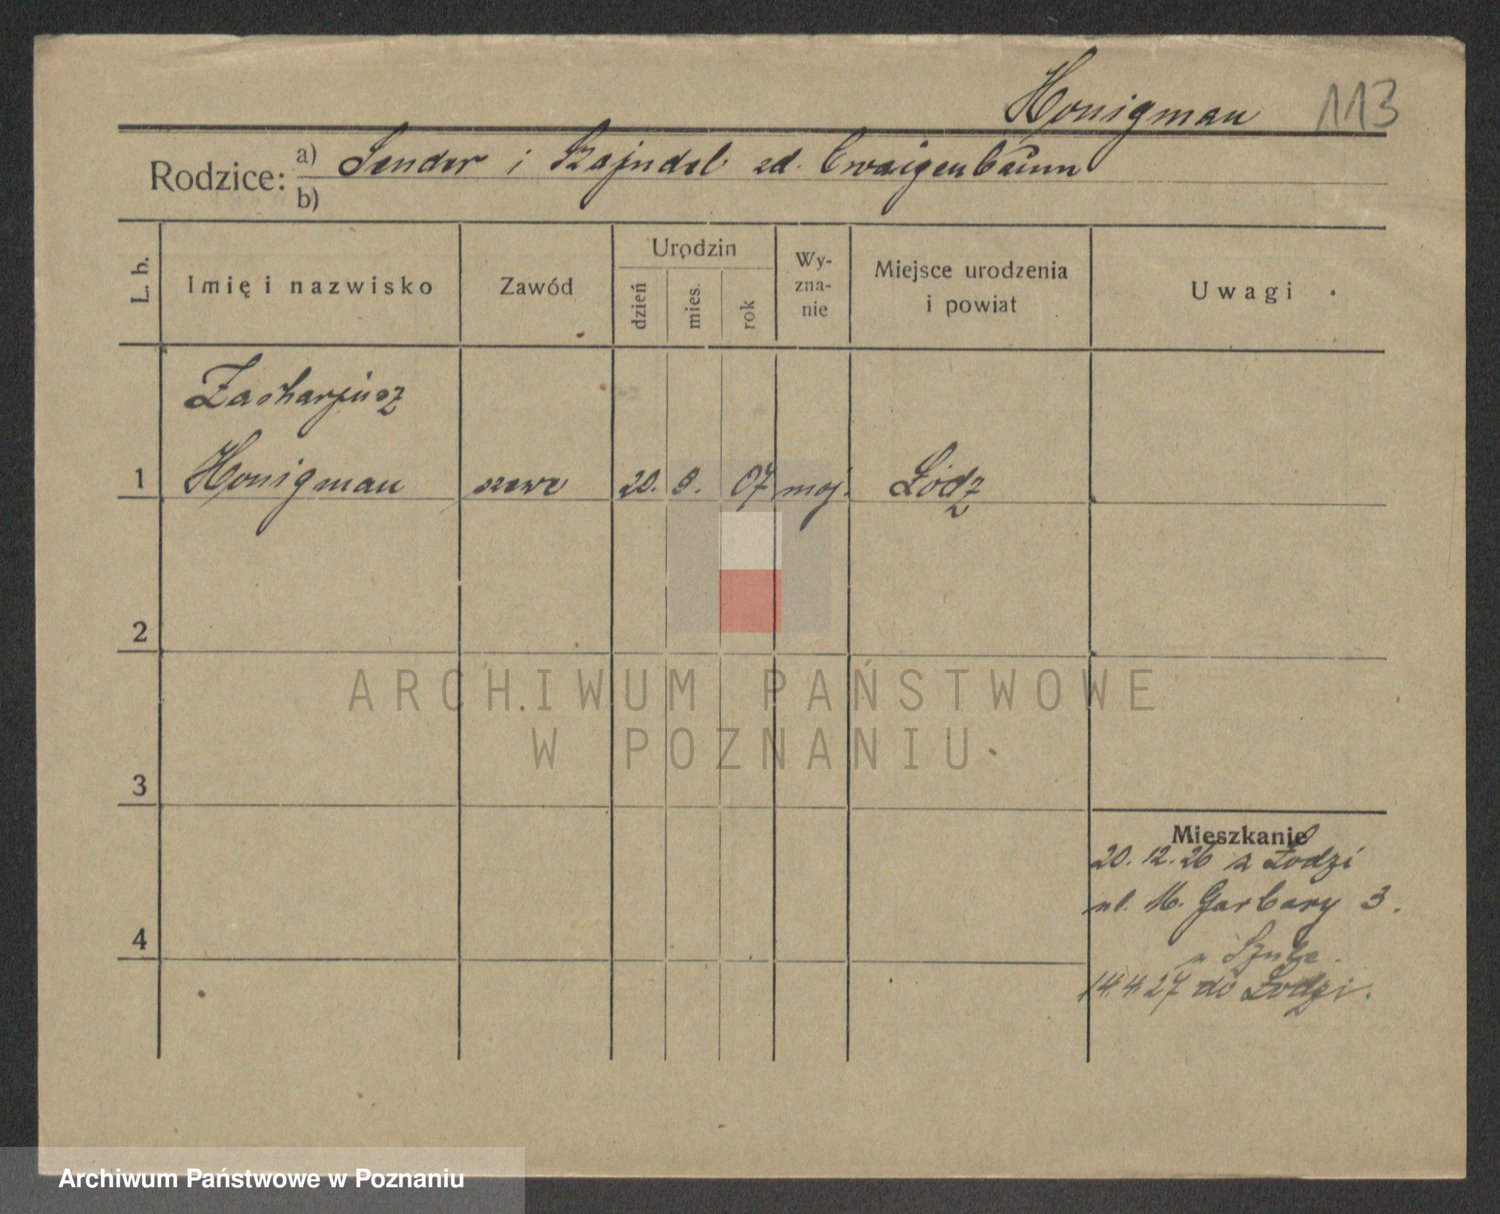 Honigman 113
Rodzice: a) Sender i Szajndel zd. Cwaigenbaum
b)
L. b.
Imię i nazwisko
Zawód
Urodzin
dzień
mies.
rok
Wy-
zna-
nie
Miejsce urodzenia
i powiat
Uwagi
Zacharjusz
1 Honigman szewc 20. 9. 07 moj. Łódz
2
3
4
Mieszkanie
20. 12. 26 z Łodzi
ul. M. Garbary 3.
14.4.27 do Łodzi.
ARCHIWUM PAŃSTWOWE
W POZNANIU
Archiwum Państwowe w Poznaniu